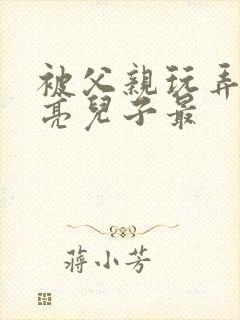 被父親玩弄
亮兒子最
蔣小芳